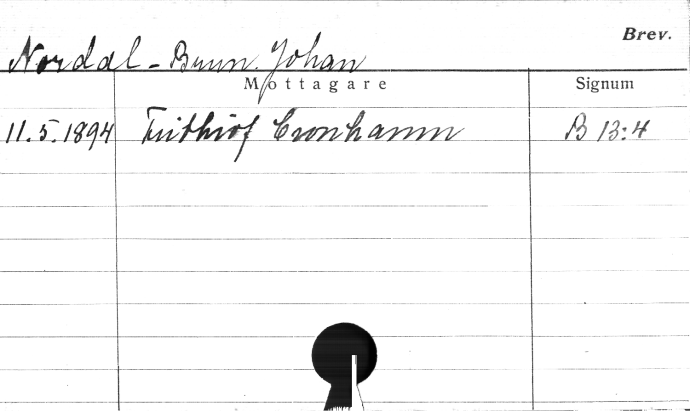 Brev.
Nordal-Brun, Johan
Mottagare Signum
11.5.1894 Frithiof Cronhamn B 13:4